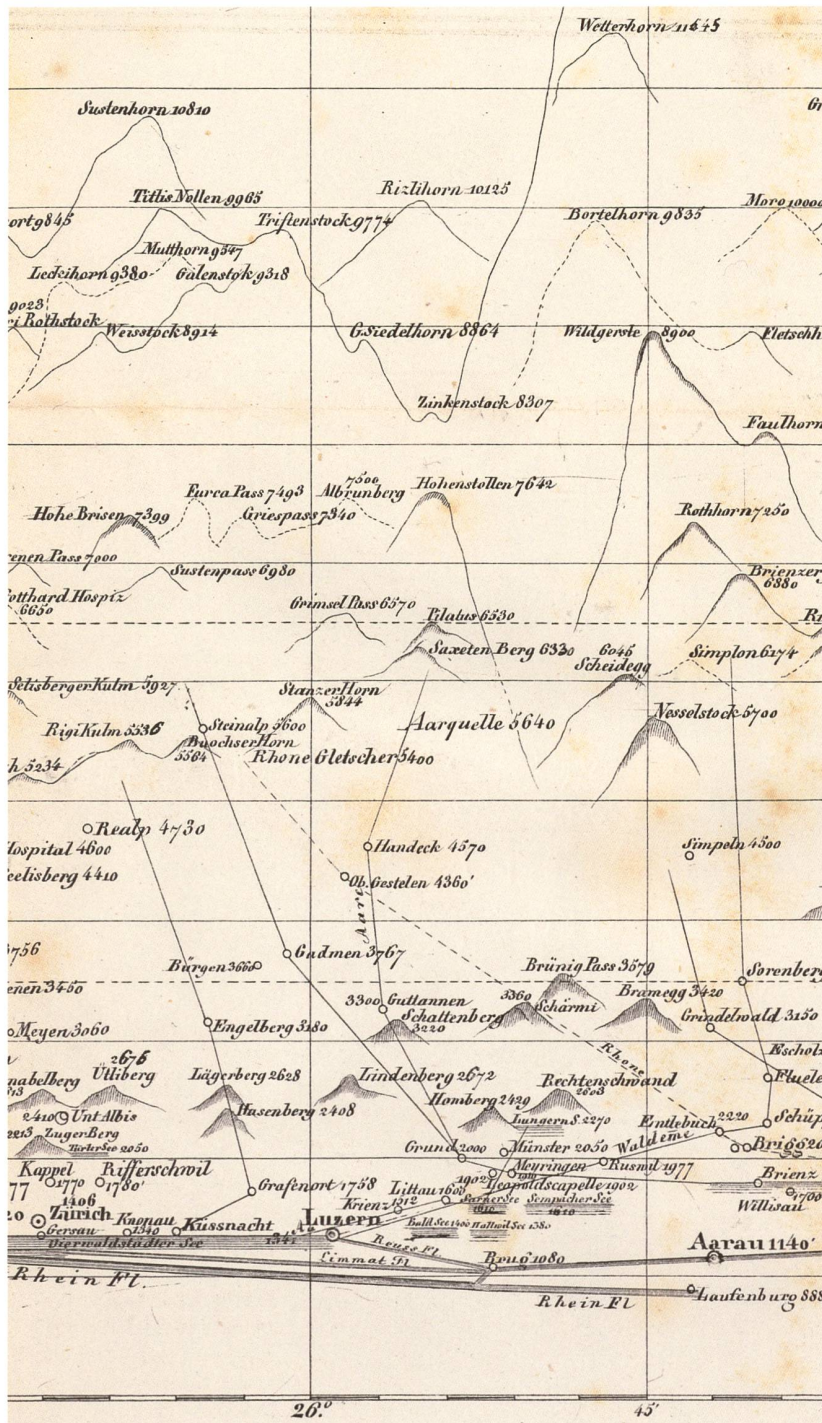 Wetterhorn 11445
Sustenhorn 10810
Gr
Rizlihorn 10125
Titlis Nollen 9965
Moro 10000
ort 9845
Tristenstock 9774
Bortelhorn 9835
Mutthorn 9547
Leckihorn 9380
Galenstok 9318
9023
ri Rothstock
Weisstock 8914
G. Siedelhorn 8864
Wildgerste 8900
Fletschh
Zinkenstock 8307
Faulhorn
Furca Pass 7493
7500
Albrunberg
Hohenstollen 7642
Hohe Brisen 7399
Griespass 7340
Rothhorn 7250
enen Pass 7000
Sustenpass 6980
Brienzer
6880
Gotthard Hospiz
6650
Grimsel Pass 6570
Pilatus 6530
Saxeten Berg 6330
6045
Scheidegg
Simplon 6174
Selisberger Kulm 5927
Stanzer Horn
5844
Steinalp 5600
Aarquelle 5640
Nesselstock 5700
Rigi Kulm 5536
Buochser Horn
5564
Rhone Gletscher 5400
h 5234
Realp 4730
Handeck 4570
Simpeln 4500
Hospital 4600
Seelisberg 4410
Ob. Gestelen 4360'
Aare
3756
Gadmen 3767
Bürgen 3660
Brünig Pass 3579
Sorenberg
enen 3450
3300 Guttannen
Schattenberg
3220
3360
Schärmi
Bramegg 3420
Meyen 3060
Engelberg 3180
Grindelwald 3150
Rhone
Escholz
2676
nabelberg
Ütliberg
Lägerberg 2628
Lindenberg 2672
Rechtenschwand
2603
Fluele
2410
Unt Albis
Hasenberg 2408
Homberg 2429
Lungern S. 2270
Entlebuch 2220
Schüp
2213
Zuger Berg
Türler See 2050
Grund 2000
Münster 2050
Waldeme
Brigg 20
Kappel
1770
Rifferschwil
1780'
Meyringen
Rusmil 1977
1902
Leopoldscapelle 1902
Brienz
77
1406
Grafenort 1758
Littau 1600
Sarner See
1610
Sempacher See
1610
Willisau
1700
Krienz 1212
20
Zürich
Gersau
Knonau
1340
Küssnacht
1341
Luzern
Bald See 1400
Hallwil See 1380
Vierwaldstädter See
Reuss Fl.
Limmat Fl
Brug 1080
Aarau 1140'
Rhein Fl.
Rhein Fl
Laufenburg 888
26.°
45'